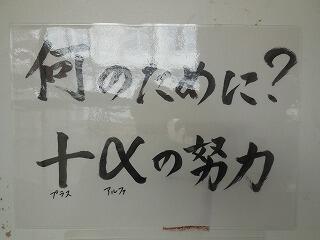 何のために?
+αの努力
プラス アルファ